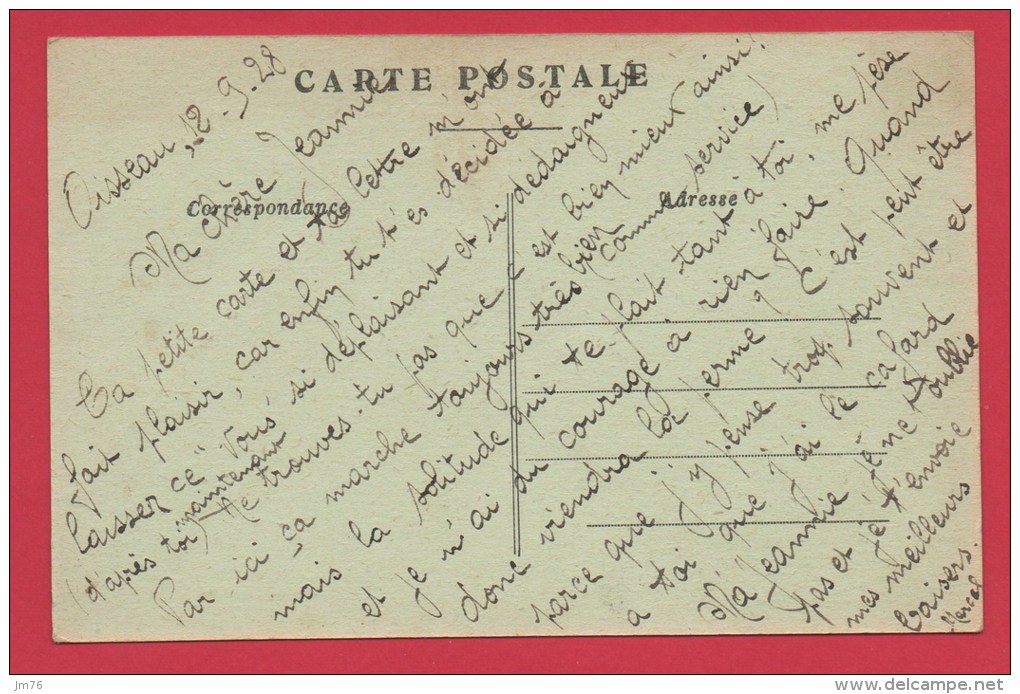 CARTE POSTALE
Correspondance
Adresse
Oisseau, 12-9-28
Ma chère Jeannie
Ta petite carte et ta lettre m'ont
fait plaisir, car enfin tu t'es décidée à
laisser ce "vous" si déplaisant et si dédaigneux
(d'après toi) maintenant
Ne trouves-tu pas que c'est bien mieux ainsi!
Par ici ça marche toujours très bien (comme service)
mais la solitude qui te plait tant à toi, me pèse
et je n'ai du courage à rien faire. Quand
donc viendra la perme? C'est peut être
parce que j'y pense trop souvent et
à toi que j'ai le cafard
Ma Jeannie je ne t'oublie
pas et je t'envoie
mes meilleurs
baisers.
Marcel
jm76
www.delcampe.net